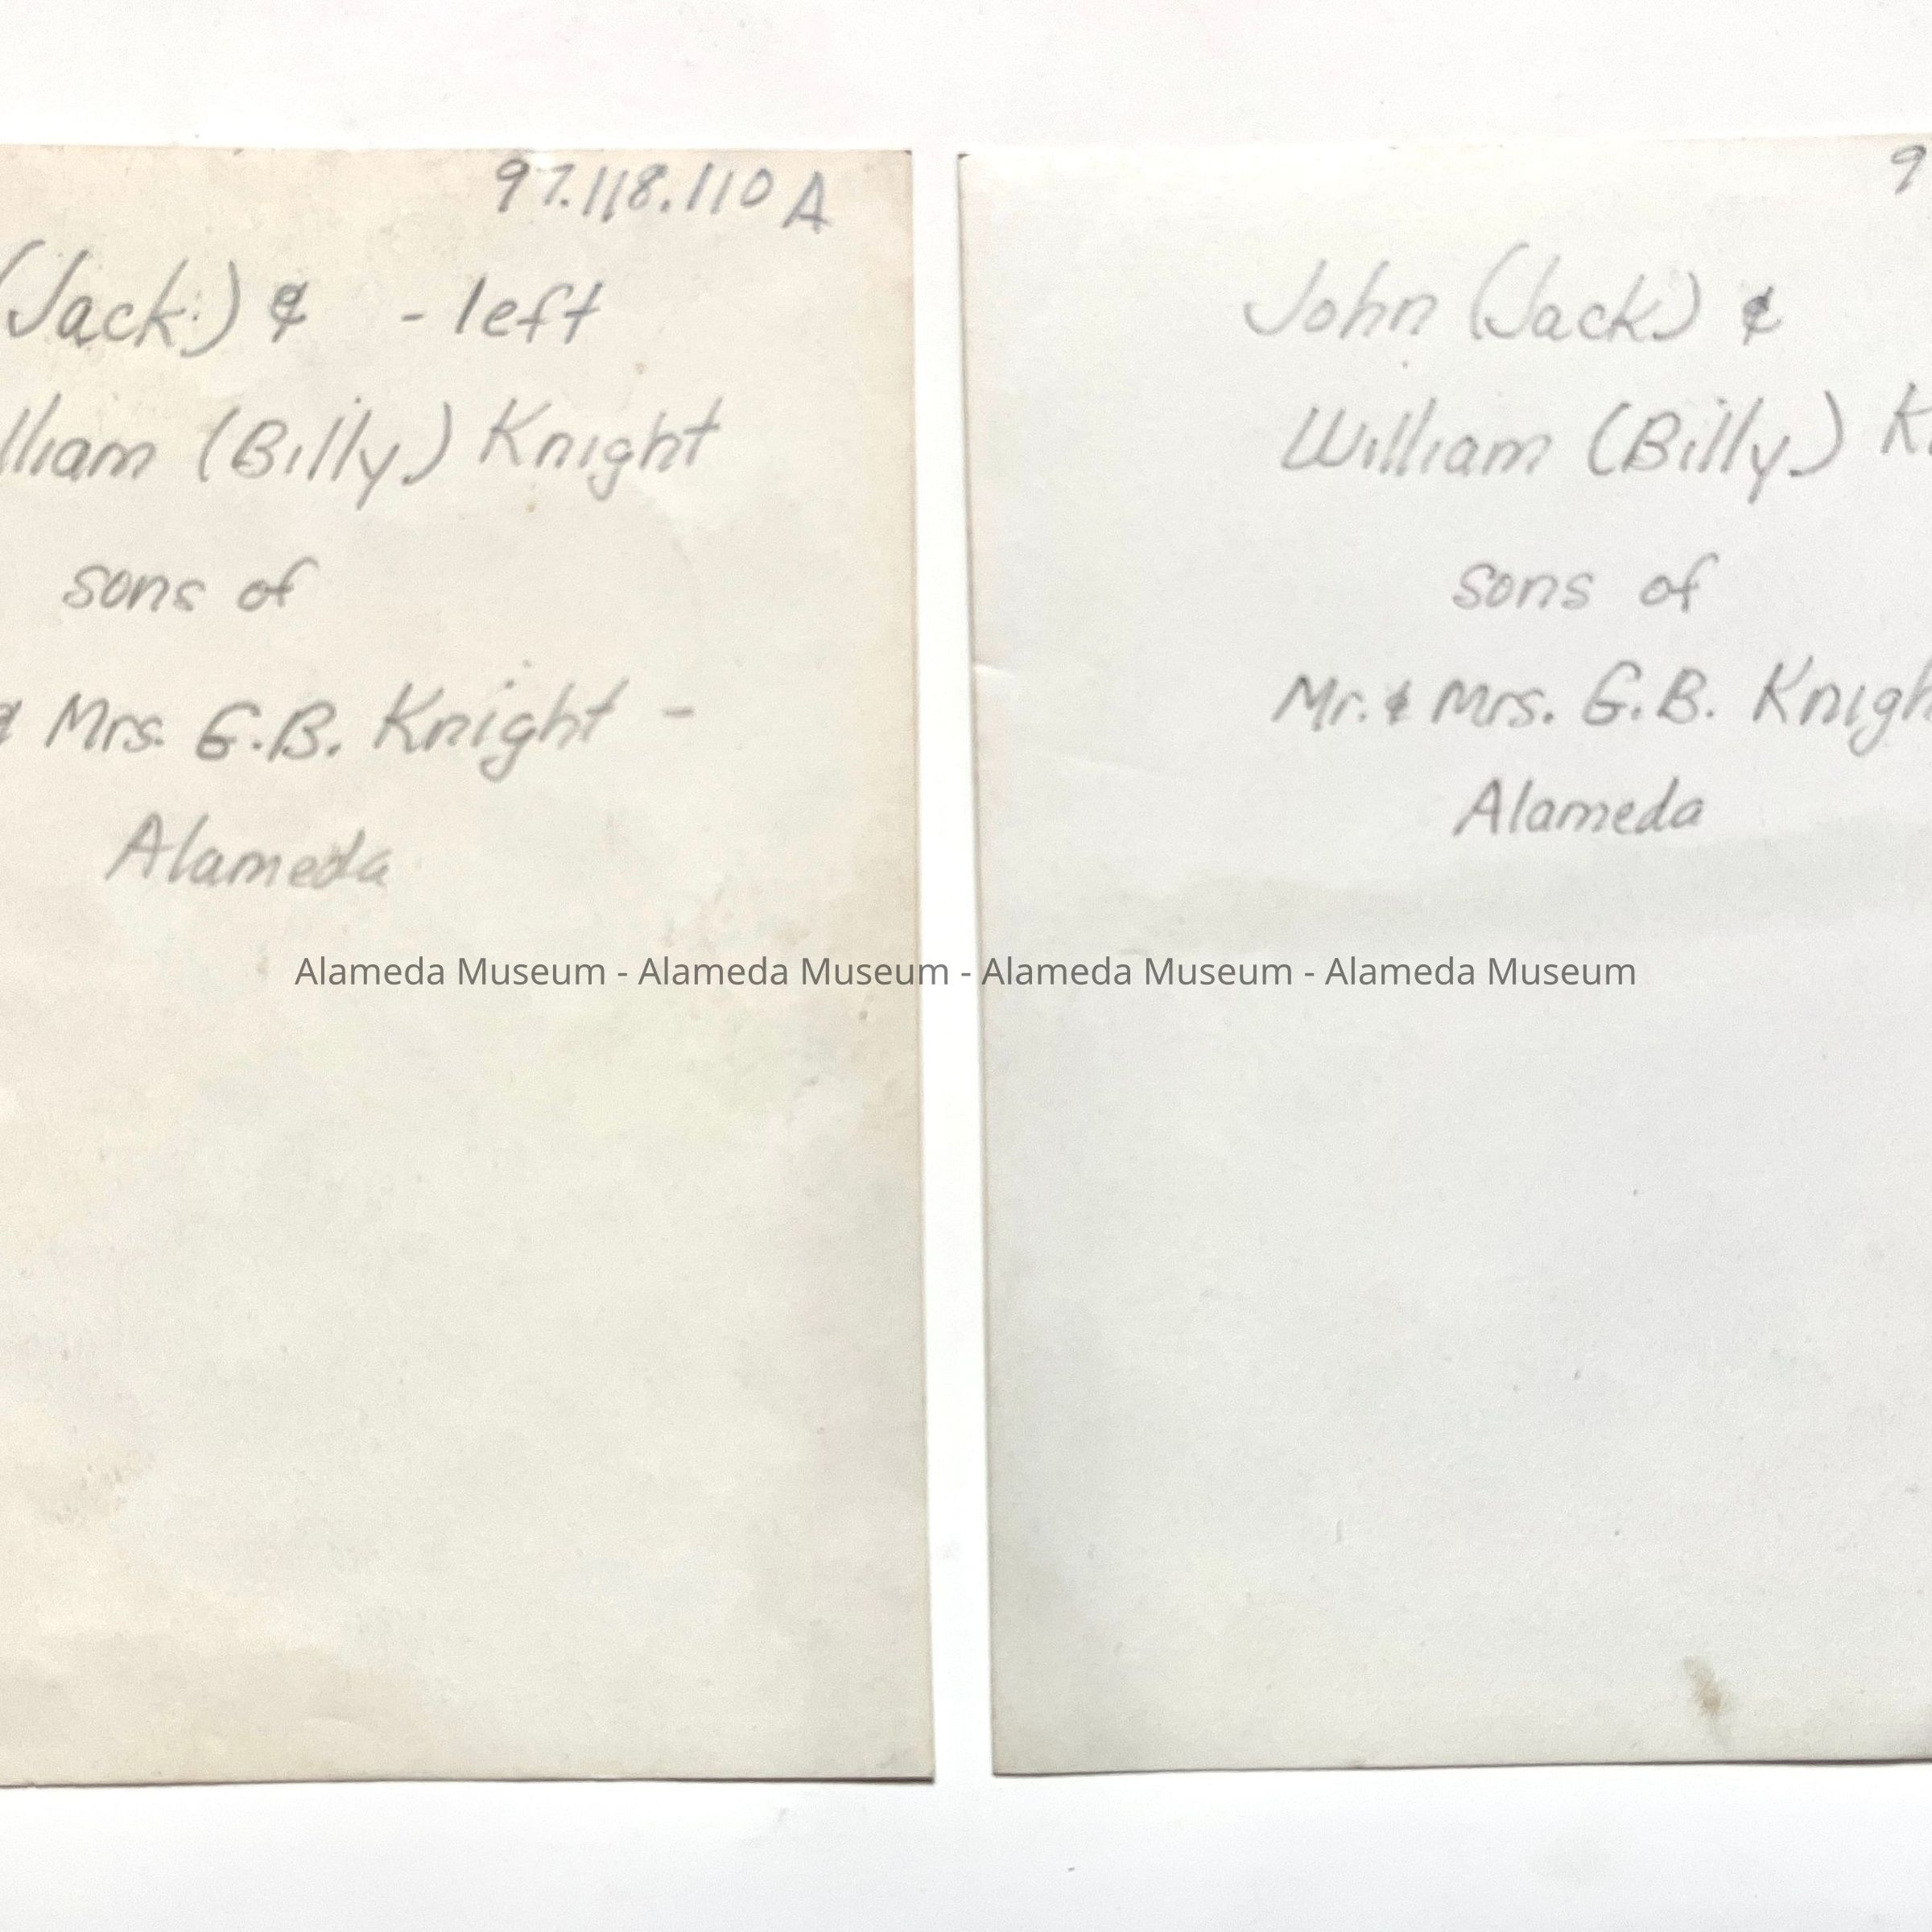 97.118.110 A
(Jack) & - left
lliam (Billy) Knight
sons of
& Mrs. G.B. Knight -
Alameda
9
John (Jack) &
William (Billy) K
sons of
Mr. & Mrs. G.B. Knigh
Alameda
Alameda Museum - Alameda Museum - Alameda Museum - Alameda Museum